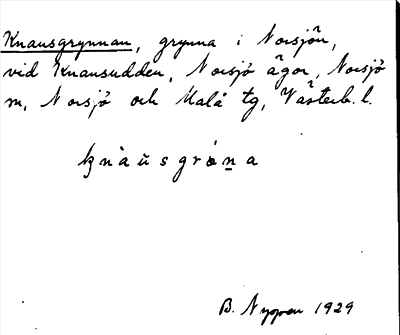 Knausgrynnan, grynna i Norsjön,
vid Knausudden, Norsjö ägor, Norsjö
sn, Norsjö och Malå tg, Västerb. l.
B. Nygren 1929